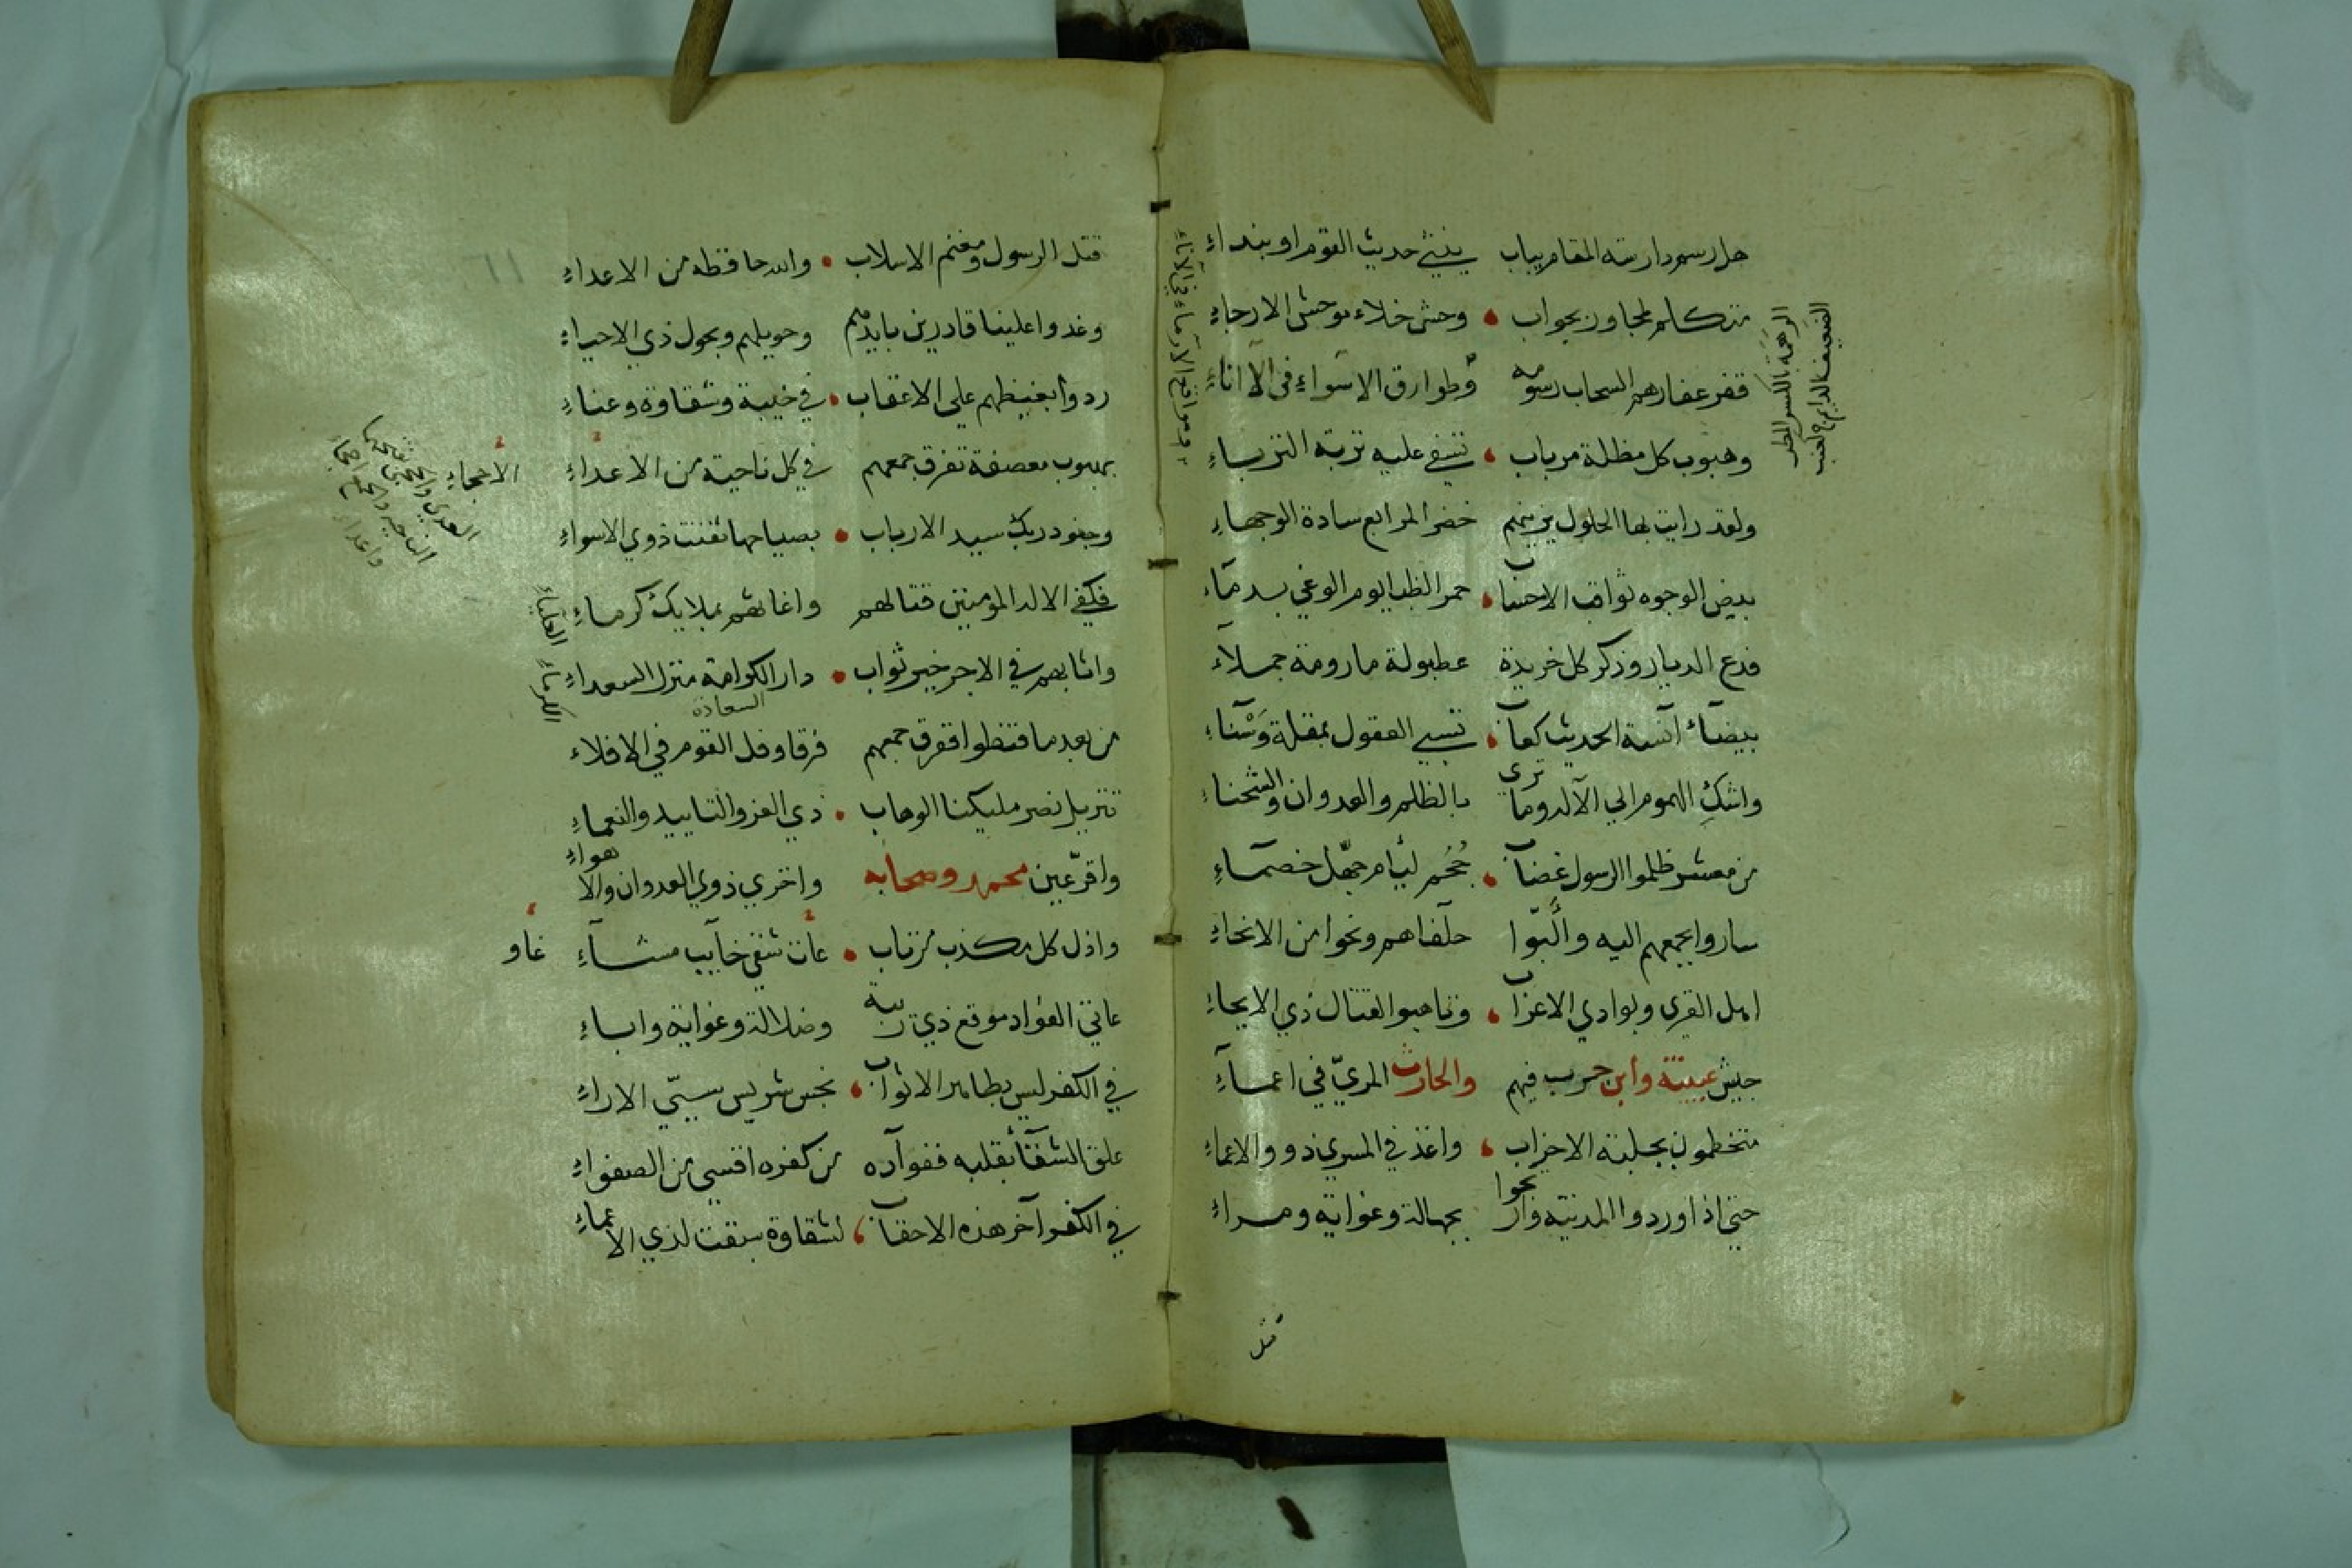 هل رسم دارسة المقام بباب ينبئ حديث القوم او بنداءِ
متكلم لمحاور بجواب وحش خلاء موحش الارجاءِ
قفر عفا رهم السحاب رسومه وطوارق الاسواءِ فى الآناءِ
وهبوب كل مظلة مرباب تسفي عليه تربة التربساءِ
ولقد رايت بها الحلول يزينهم خضر المرابع سادة الوجهاءِ
بيض الوجوه ثواقب الاحساب حمر الظبا يوم الوغي بدمآء
فدع الديار وذكر كل خريدة عطبولة مارومة جملآء
بيضآء آنسة الحديث كعاب تسبي العقول بمقلة وَسْنآء
واشكُ الهموم الي الآله وما تري بالظلم والعدوان والشحناءِ
من معشر ظلموا الرسول غضاب لئام جهّل خصمآءِ
ساروا بجمعهم اليه وألّبوا حلفاهم ونحوا من الانحاءِ
اهل القرى وبوادي الاعراب وتاهبوا لقتال ذي الايحاءِ
جيش عيينة وأبن حرب فيهم والحارث المريّ في اعمآءِ
متخطمون بحلبة الاحزاب واغذ في المسري ذوو الاعماءِ
حتي اذا وردوا المدينة وارتجوا بجهالة وغواية ومراءِ
قتل
الرهمة بالكسر المطر
الضعيف الدايم
ومواقع الآرماء في الآناءِ
قتل الرسول ومغنم الاسلاب والله حافظه من الاعداءِ
وغدوا علينا قادرين بايدهم وحويلهم وبحول ذي الاحياءِ
ردوا بغيظهم على الاعقاب في خيبة وشقاوة وعناءِ
بهبوب معصفة تفرق جمعهم في كل ناحية من الاعداءِ
الاحجاءِ
وجنود ربك سيد الارباب بصياحها تفنت ذوي الاسواءِ
فكفي الاله المؤمنين قتالهم واغاثهم بملايك كرماءِ
العلياءِ
واثابهم في الاجر خير ثواب دار الكرامة منزل السعداءِ
السعادة
الكرماءِ
من بعد ما قنطوا ففرق جمعهم فرقا وفل القوم في الافلاء
تنزيل نصر مليكنا الوهاب ذي العز والتاييد والنعماءِ
واقرّ عين محمد وصحابه واخزي ذوي العدوان والاهواءِ
واذل كل مكذب مرتاب عات شقي خآيب مشآءِ
غاو
عاتي الفواد موقع ذي ريبة وضلالة وغواية واباءِ
في الكفر ليس بطاهر الاثواب نجس شريس سيئ الاراءِ
علق الشقآء بقلبه ففوآده من كفره اقسي من الصفواءِ
في الكفر آخر هذه الاحقاب لشقاوة سبقت لذي الاعماءِ